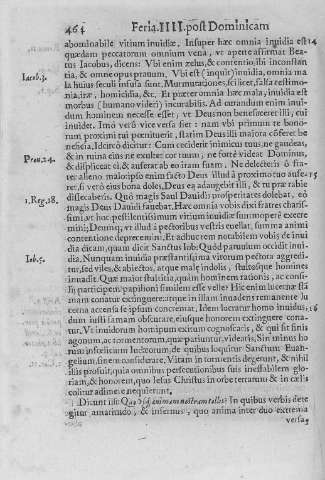 464 Feria. IIII. post Dominicam
abominabile vitium inuidiæ. Insuper hæc omnia inuidia est 14
quædam peccatorum omnium vena, vt aperte affirmat Bea-
tus Iacobus, dicens: Vbi enim zelus, & contentio, ibi inconstan
Iacob. 3.
tia, & omne opus prauum. Vbi est (inquit) inuidia, omnia ma
la huius seculi infusa sunt, Murmurationes, scilicet, falsa testimo-
nia, iræ, homicidia, &c. Et præter omnia hæc mala, inuidia est
morbus (humano videri) incurabilis. Ad curandum enim inui-
dum hominem necesse esset, vt Deus non benefaceret illi, cui
inuidet. Imo vero vice versa fiet: nam vbi primum te bono-
rum proximi tui pœnituerit, statim Deus illi maiora conferet be
neficia, Idcirco dicitur: Cum ceciderit inimicus tuus, ne gaudeas,
Prou. 24.
& in ruina eius ne exultet cor tuum, ne forte videat Dominus,
& displiceat ei, & auferat ab eo iram suam. Ne delecteris ô fra-
ter alieno malo: ipso enim facto Deus illud à proximo tuo aufe 15
ret, si vero eius bona doles, Deus ea adaugebit illi, & tu præ rabie
dissecaberis. Quo magis Saul Dauidis prosperitates dolebat, eo
1. Reg. 18.
magis Deus Dauidi fauebat. Hæc omnia vobis dixi fratres charis-
simi, vt hoc pestilentissimum vitium inuidiæ summopere execre
mini; Deumq; vt illud à pectoribus vestris euellat, summa animi
contentione deprecemini. Et ad hæc rem notabilem vobis de inui
dia dicam, quam dicit Sanctus Iob: Quod paruulum occidit inui-
dia. Nunquam inuidia præstantissima vitorum pectora aggredi-
Iob. 5.
tur, sed viles, & abiectos, atque malæ indolis, stultosque homines
inuadit. Quæ maior stultitia, quàm hominem rationis, ac consi-
lij participem, papilioni similem esse velle? Hic enim lucernæ flā
mam conatur extinguere: atque in illam inuadens remanente lu
cerna accensa se ipsum concremat. Idem locatur homo inuidus, 16
dum iusti famam obscurat, eiusque honorem extinguere cona-
tur. Vt inuidorum hominum exitum cognoscatis, & qui sit finis
agonum, ac tormentorum, quæ patiuntur, videatis, Sin minus ho
rum infœlicium Iudæorum, de quibus loquitur Sanctum Euan-
gelium, sinem considerare. Vitam in tormentis degerunt, & nihil
illis profuit, quia omnibus persecutionibus suis ineffabilem glo-
riam, & honorem, quo Iesus Christus in orbe terrarum & in cælis
colitur adimere nequiuerunt.
Dicunt illi: Quousque animam nostram tollis? In quibus verbis dete
gitur amaritudo, & infernus, quo anima inter duo extrema
versaꝗ